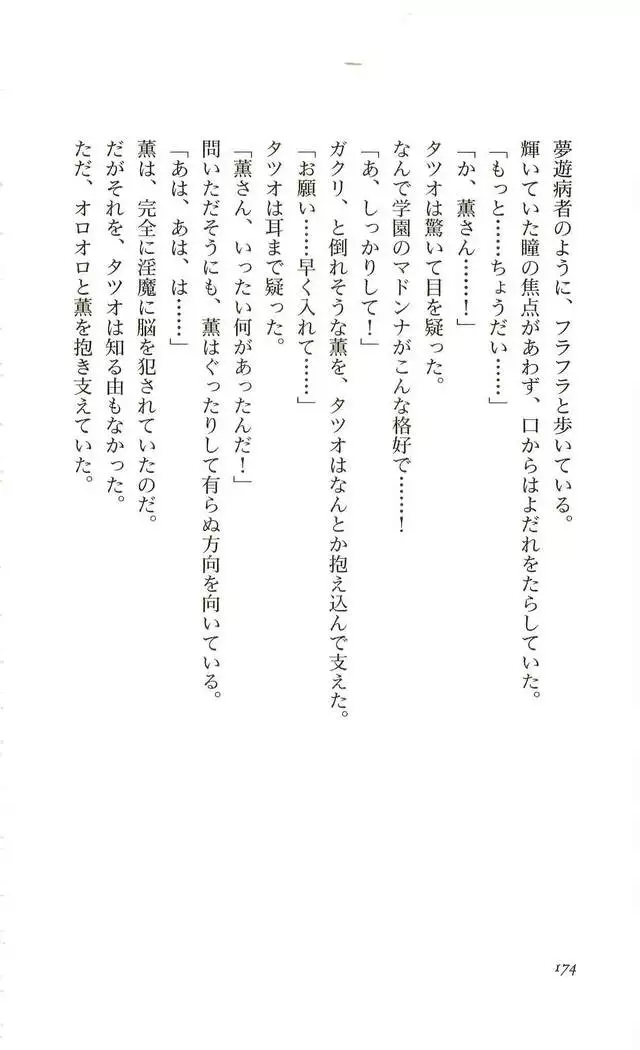 夢遊病者のように、フラフラと歩いている。
輝いていた瞳の焦点があわず、口からはよだれをたらしていた。
「もっと……ちょうだい……」
「か、薫さん……！」
タツオは驚いて目を疑った。
なんで学園のマドンナがこんな格好で……！
「あ、しっかりして！」
ガクリ、と倒れそうな薫を、タツオはなんとか抱え込んで支えた。
「お願い……早く入れて……」
タツオは耳まで疑った。
「薫さん、いったい何があったんだ！」
問いただそうにも、薫はぐったりして有らぬ方向を向いている。
「あは、あは、は……」
薫は、完全に淫魔に脳を犯されていたのだ。
だがそれを、タツオは知る由もなかった。
ただ、オロオロと薫を抱き支えていた。
174